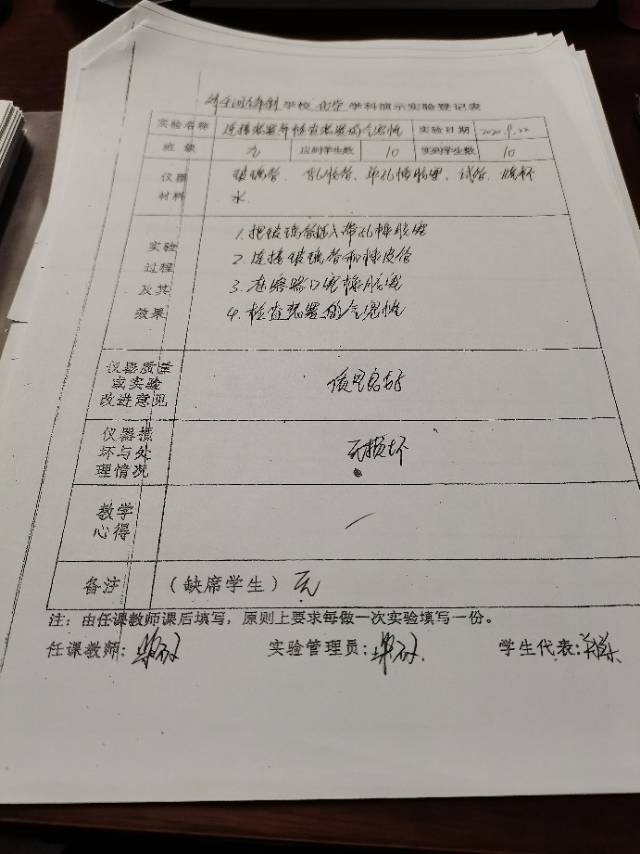 学校 化学 学科演示实验登记表
实验名称 连接装置并检查装置的气密性 实验日期 2020.9.22
班级 九 应到学生数 10 实到学生数 10
仪器 玻璃管、乳胶管、单孔橡胶塞、试管、烧杯
材料 水
实验 1.把玻璃管插入带孔橡胶塞
过程 2.连接玻璃管和橡皮管
及其 3.在容器口塞橡胶塞
效果 4.检查装置的气密性
仪器质量
或实验 质量完好
改进意见
仪器损
坏与处 无损坏
理情况
教学
心得 /
备注 （缺席学生）无
注：由任课教师课后填写，原则上要求每做一次实验填写一份。
任课教师： 实验管理员： 学生代表：